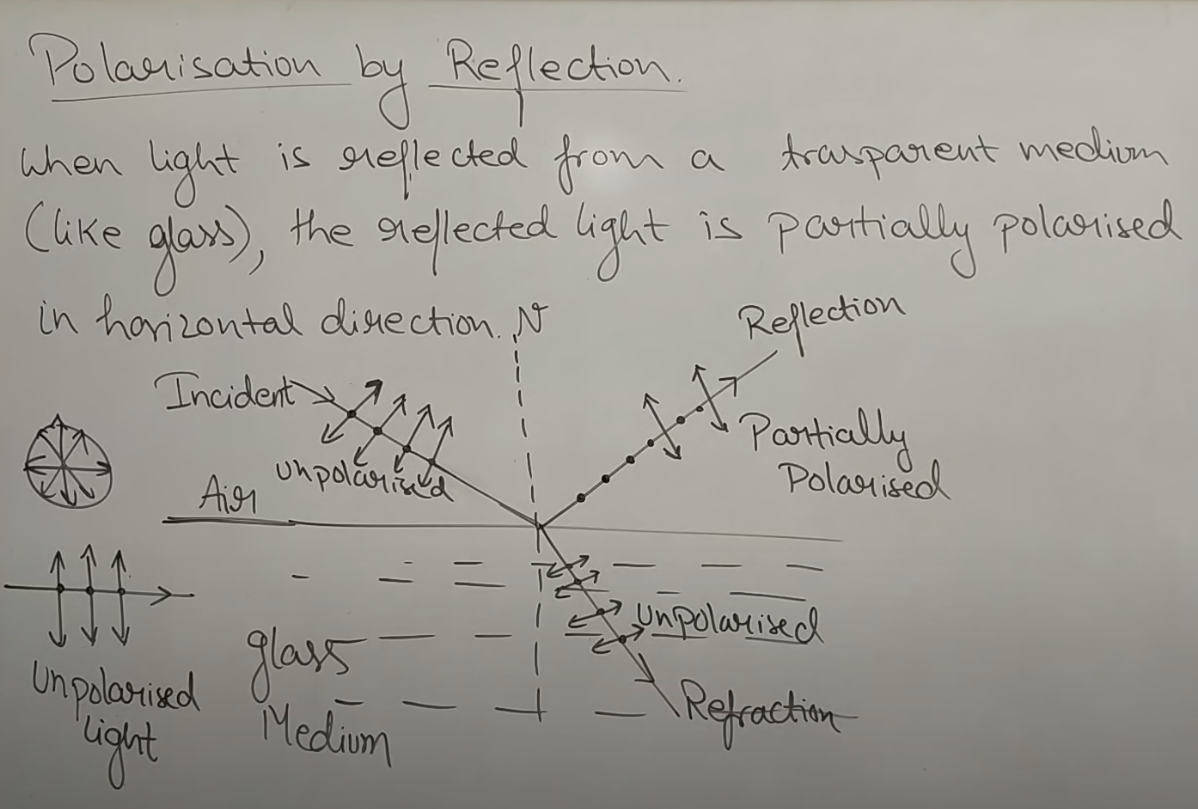 Polarisation by Reflection.
When light is reflected from a trasparent medium
(like glass), the reflected light is partially polarised
in horizontal direction.
N
Reflection
Incident
unpolarised
Partially
Polarised
Air
unpolarised
glass
Medium
Refraction
Unpolarised
light